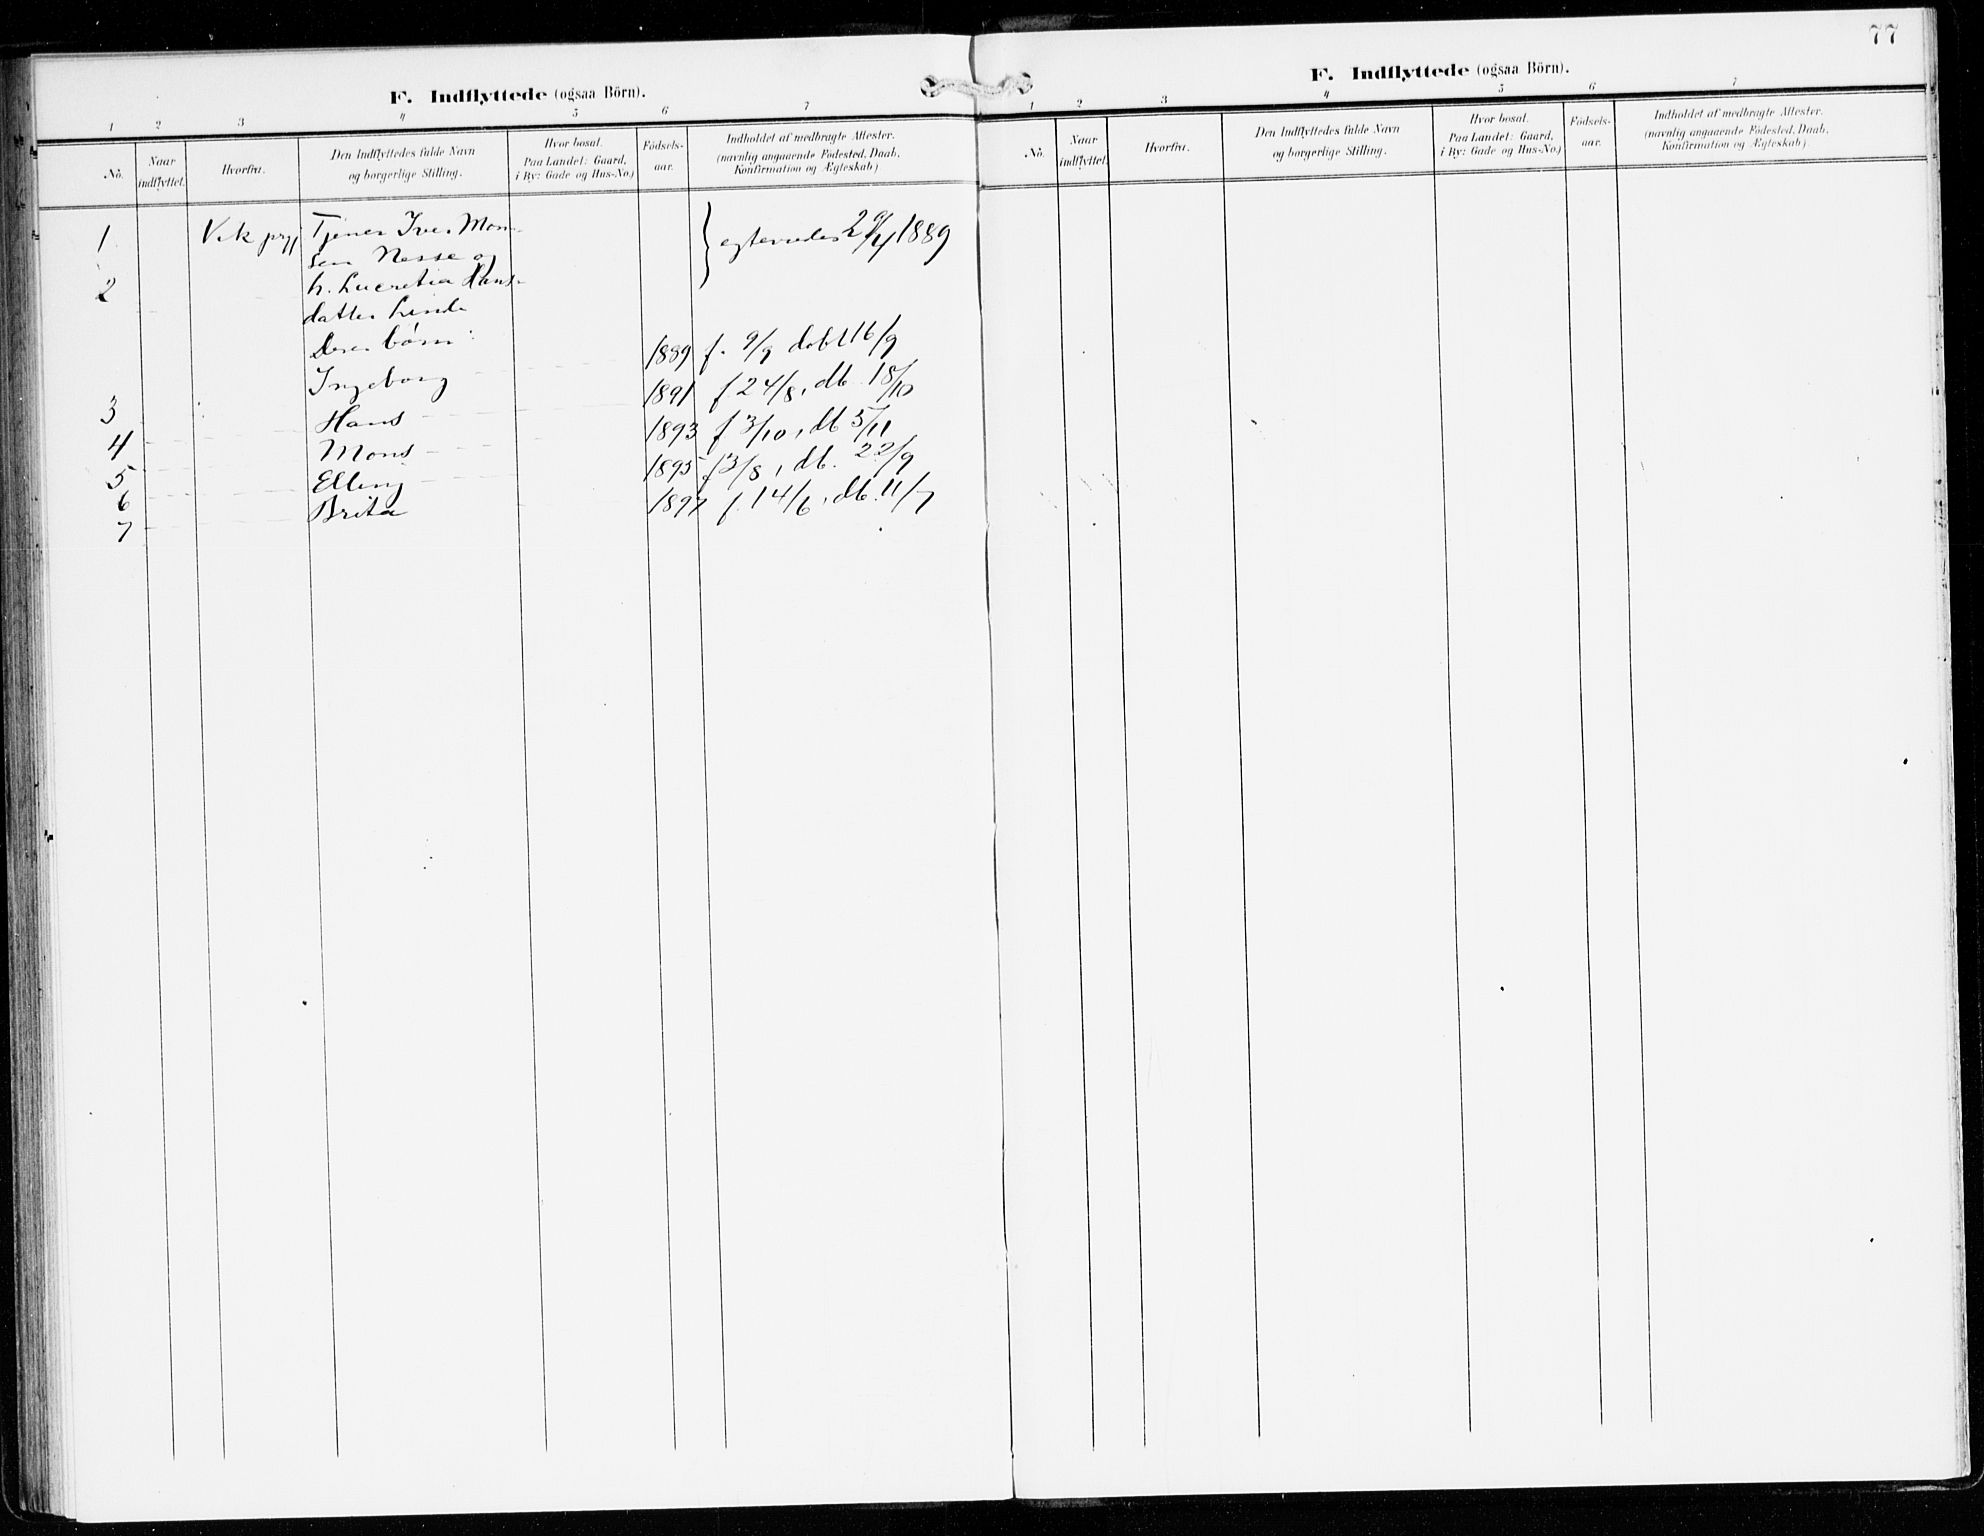 77
F. Indflyttede (ogsaa Börn).
1 2 3 4 5 6 7
No.
Naar indflyttet.
Hvorfra.
Den Indflyttedes fulde Navn
og borgerlige Stilling.
Hvor bosat.
Paa Landet: Gaard,
i By: Gade og Hus-No.)
Födsels-
aar.
Indholdet af medbragte Attester.
(navnlig angaaende Födested, Daab,
Konfirmation og Ægteskab)
1 Vik prgj Tjener Iver Mon-
sen Nesse og
2 h. Lucretia Hans-
datter Linde
egteviedes 2 1889
Deres børn:
Ingeborg 1889 f. 9/9 døbt 16/9
3 Hans 1891 f 24/8, db. 18/10
4 Mons 1893 f 3/10, db 5/11
5 Elling 1895 f 3/8, db. 22/9
6 Brita 1897 f. 14/6, db. 11/7
7
F. Indflyttede (ogsaa Börn).
1 2 3 4 5 6 7
No.
Naar
indflyttet.
Hvorfra.
Den Indflyttedes fulde Navn
og borgerlige Stilling.
Hvor bosat.
Paa Landet: Gaard,
i By: Gade og Hus-No.)
Födsels-
aar.
Indholdet af medbragte Attester.
(navnlig angaaende Födested, Daab,
Konfirmation og Ægteskab)